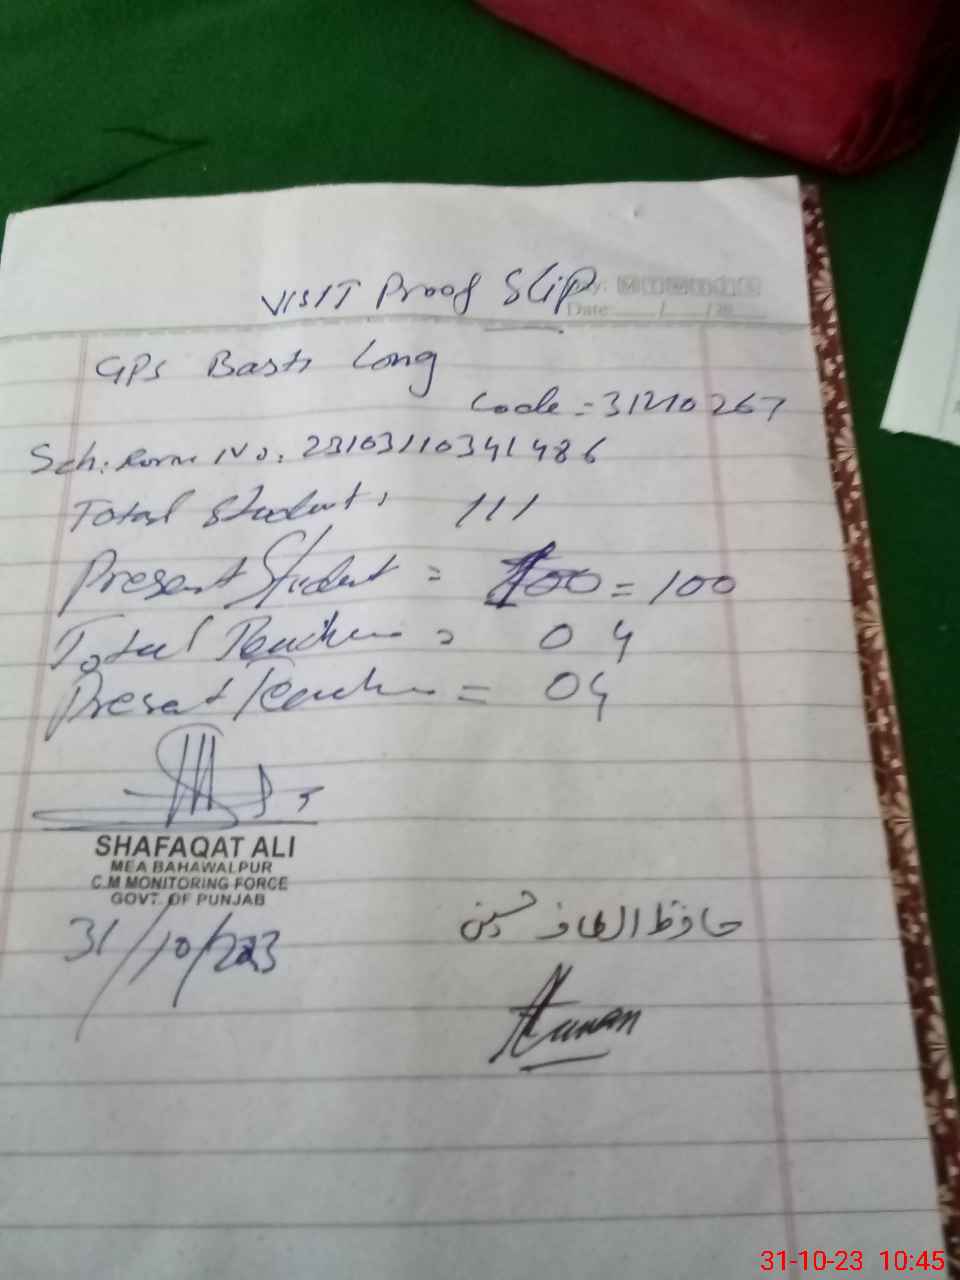 VISIT Proof Slip
Date: / /20
GPS Basti Long
Code = 31210267
Sch: Form No: 23103110341486
Total Student: 111
Present Student = 100 = 100
Total Teacher = 04
Present Teacher = 04
SHAFAQAT ALI
MEA BAHAWALPUR
C.M MONITORING FORCE
GOVT. OF PUNJAB
31/10/2023
حافظ الطاف حسین
31-10-23 10:45